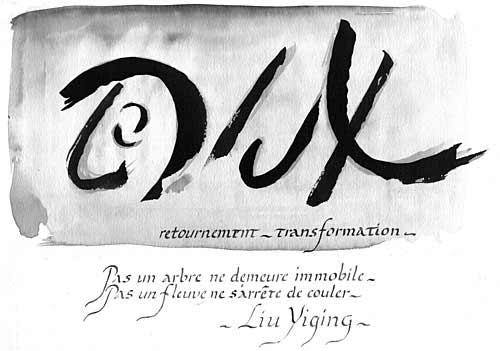 retournement ~ transformation ~
Pas un arbre ne demeure immobile ~
Pas un fleuve ne s'arrête de couler ~
~ Liu Yiqing ~